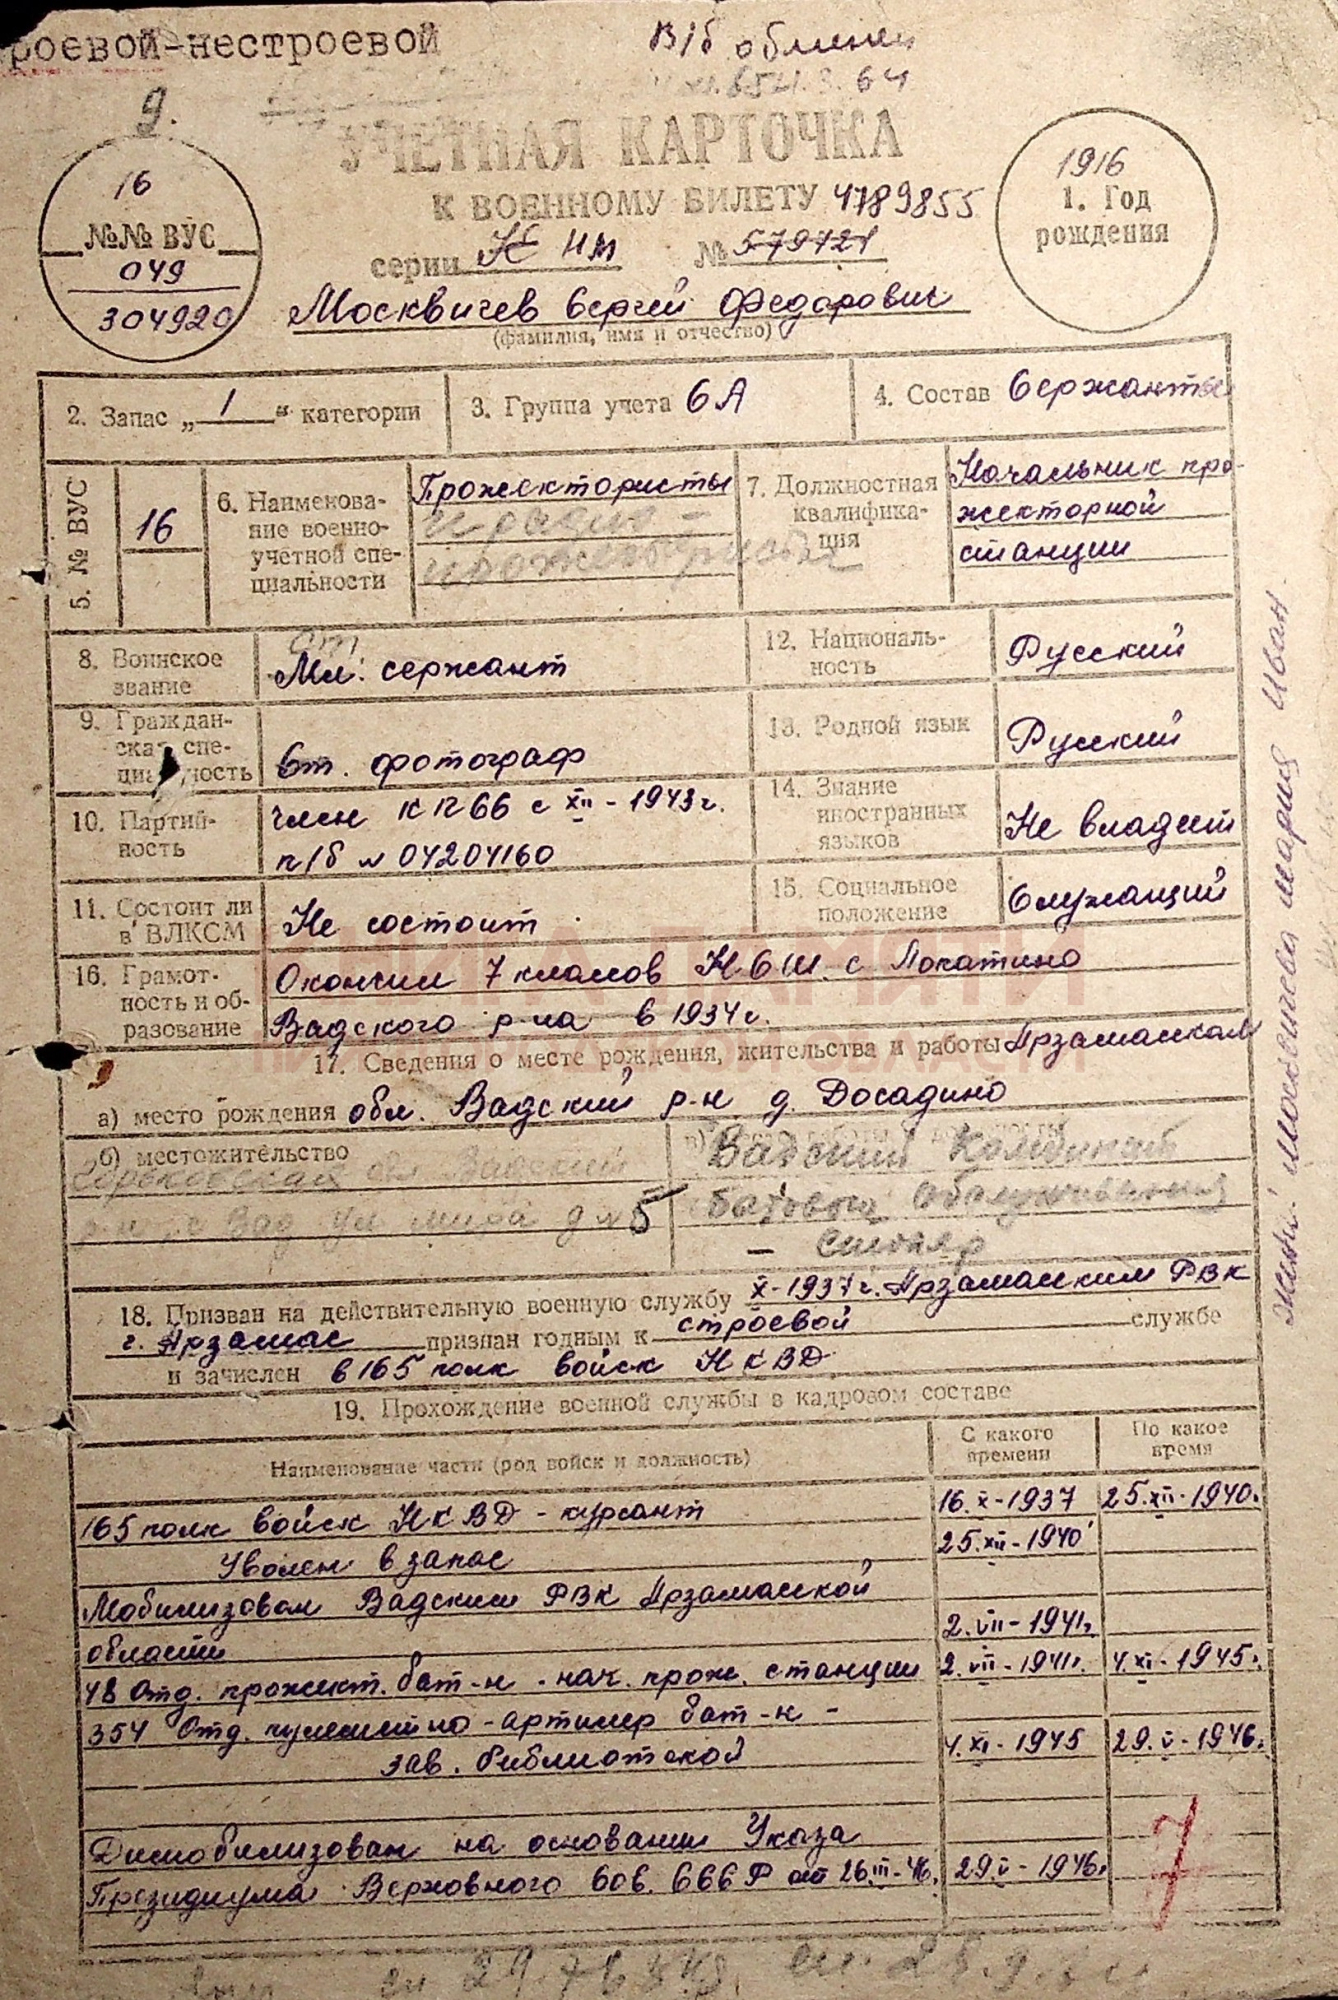 роевой-нестроевой
В/б обменен
9.
УЧЕТНАЯ КАРТОЧКА
К ВОЕННОМУ БИЛЕТУ 4789855
серии НМ № 579121
16
№№ ВУС
049
304920
1916
1. Год
рождения
Москвичев Сергей Федорович
(фамилия, имя и отчество)
2. Запас „1“ категории
3. Группа учета СА
4. Состав Сержанты
5. № ВУС
16
6. Наименова-
ние военно-
учетной спе-
циальности
Прожектористы
и радио-
прожектористы
7. Должностная
квалифика-
ция
Начальник про-
жекторной
станции
8. Воинское
звание
Мл. сержант
9. Граждан-
ская спе-
циальность
Ст. фотограф
10. Партий-
ность
член КПСС с XII-1943г.
п/б № 04204160
11. Состоит ли
в ВЛКСМ
Не состоит
12. Националь-
ность
Русский
13. Родной язык
Русский
14. Знание
иностранных
языков
Не владеет
15. Социальное
положение
Служащий
16. Грамот-
ность и об-
разование
Окончил 7 классов НСШ с Лопатино
Вадского р-на в 1934г.
17. Сведения о месте рождения, жительства и работы Арзамасская
а) место рождения обл. Вадский р-н д. Досадино
б) местожительство
Горьковская обл Вадский
р-н с Вад ул мира д № 5
Вадский Комбинат
бытового обслуживания
– столяр
18. Призван на действительную военную службу X-1937г. Арзамасским РВК
г. Арзамас признан годным к строевой службе
и зачислен в 165 полк войск НКВД
19. Прохождение военной службы в кадровом составе
Наименование части (род войск и должность)
С какого
времени
По какое
время
165 полк войск НКВД - курсант 16.X-1937 25.XII-1940г.
Уволен в запас 25.XII-1940
Мобилизован Вадским РВК Арзамасской
области 2.VII-1941г.
48 Отд. прожект. бат-н - нач. прож. станции 2.VII-1941г. 4.XI-1945г.
354 Отд. пулеметно-артилер бат-н -
зав. библиотекой 4.XI-1945 29.V-1946г.
Демобилизован на основании Указа
Президиума Верховного Сов. СССР от 26.III-46. 29.V-1946г.
7
жена: Москвичева Мария Иван.
КНИГА ПАМЯТИ
НИЖЕГОРОДСКОЙ ОБЛАСТИ